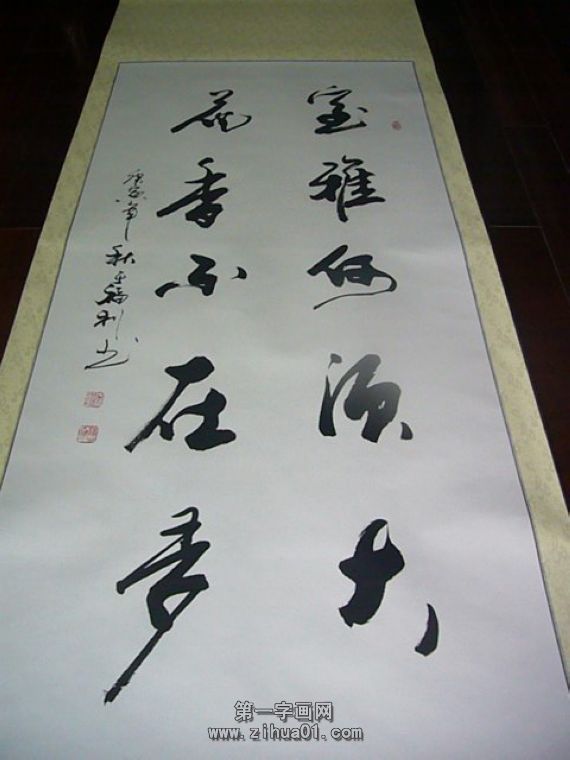 室雅何须大
花香不在多
庚寅年秋王福利书
第一字画网
www.zihua01.com